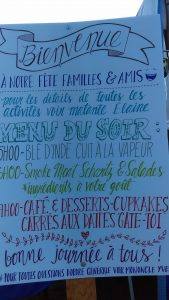 Bienvenue
À NOTRE FÊTE FAMILLES & AMIS
pour les détails de toutes les
activités voir matante Élaine
MENU DU SOIR
5H00 - BLÉ D'INDE CUIT À LA VAPEUR
6H00 - Smoke Meat Schwartz & Salades
*ingrédients à votre goût
7H00 - CAFÉ & DESSERTS - CUPKAKES
CARRÉS AUX DATTES GÂTE-TOI
bonne journée à tous!
*POUR TOUTES QUESTIONS D'ORDRE GÉNÉRIQUE VOIR MONONCLE